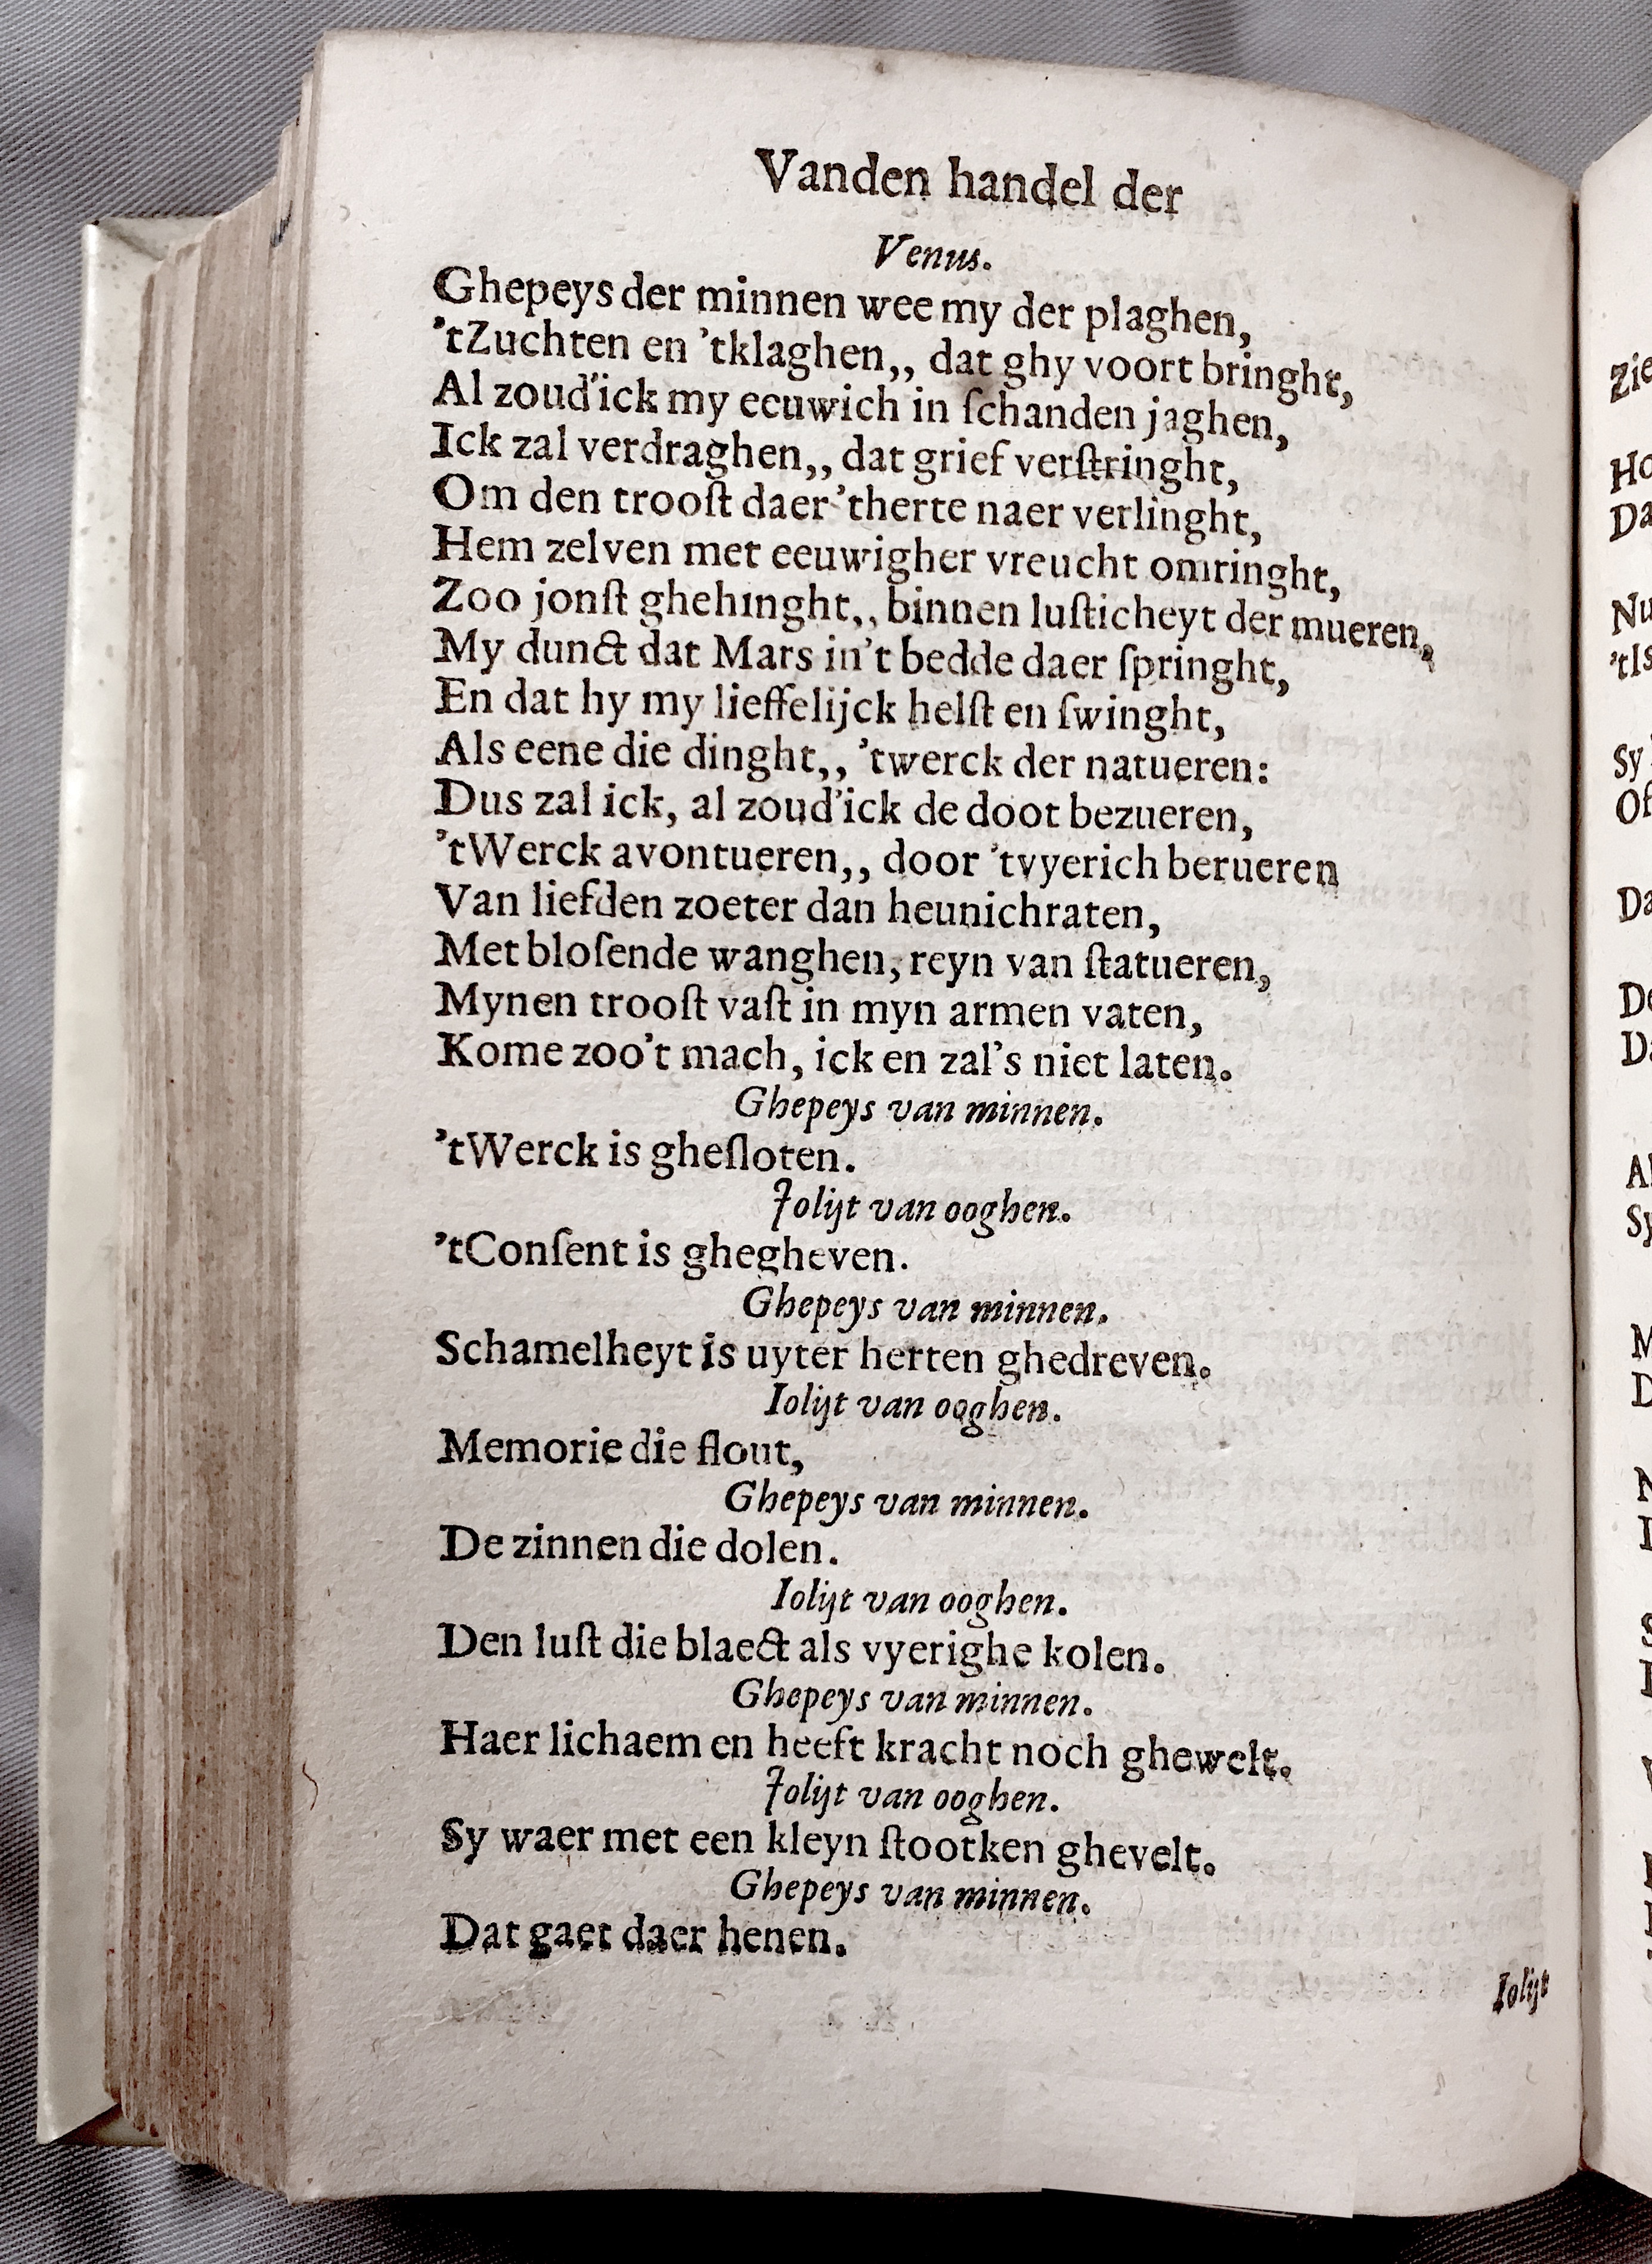 Vanden handel der
Venus.
Ghepeys der minnen wee my der plaghen,
'tZuchten en 'tklaghen,, dat ghy voort bringht,
Al zoud'ick my eeuwich in ſchanden jaghen,
Ick zal verdraghen,, dat grief verſtringht,
Om den trooſt daer 'therte naer verlinght,
Hem zelven met eeuwigher vreucht omringht,
Zoo jonſt ghehinght,, binnen luſticheyt der mueren,
My dunct dat Mars in't bedde daer ſpringht,
En dat hy my lieffelijck helſt en ſwinght,
Als eene die dinght,, 'twerck der natueren:
Dus zal ick, al zoud'ick de doot bezueren,
'tWerck avontueren,, door 'tvyerich berueren
Van liefden zoeter dan heunichraten,
Met bloſende wanghen, reyn van ſtatueren,
Mynen trooſt vaſt in myn armen vaten,
Kome zoo't mach, ick en zal's niet laten.
Ghepeys van minnen.
'tWerck is gheſloten.
Jolijt van ooghen.
'tConſent is ghegheven.
Ghepeys van minnen.
Schamelheyt is uyter herten ghedreven.
Iolijt van ooghen.
Memorie die flout,
Ghepeys van minnen.
De zinnen die dolen.
Iolijt van ooghen.
Den luſt die blaect als vyerighe kolen.
Ghepeys van minnen.
Haer lichaem en heeft kracht noch ghewelt.
Jolijt van ooghen.
Sy waer met een kleyn ſtootken ghevelt.
Ghepeys van minnen.
Dat gaet daer henen.
Iolijt